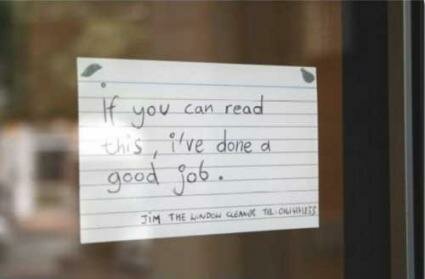 If you can read
this, i've done a
good job.
JIM THE WINDOW CLEANER TEL: